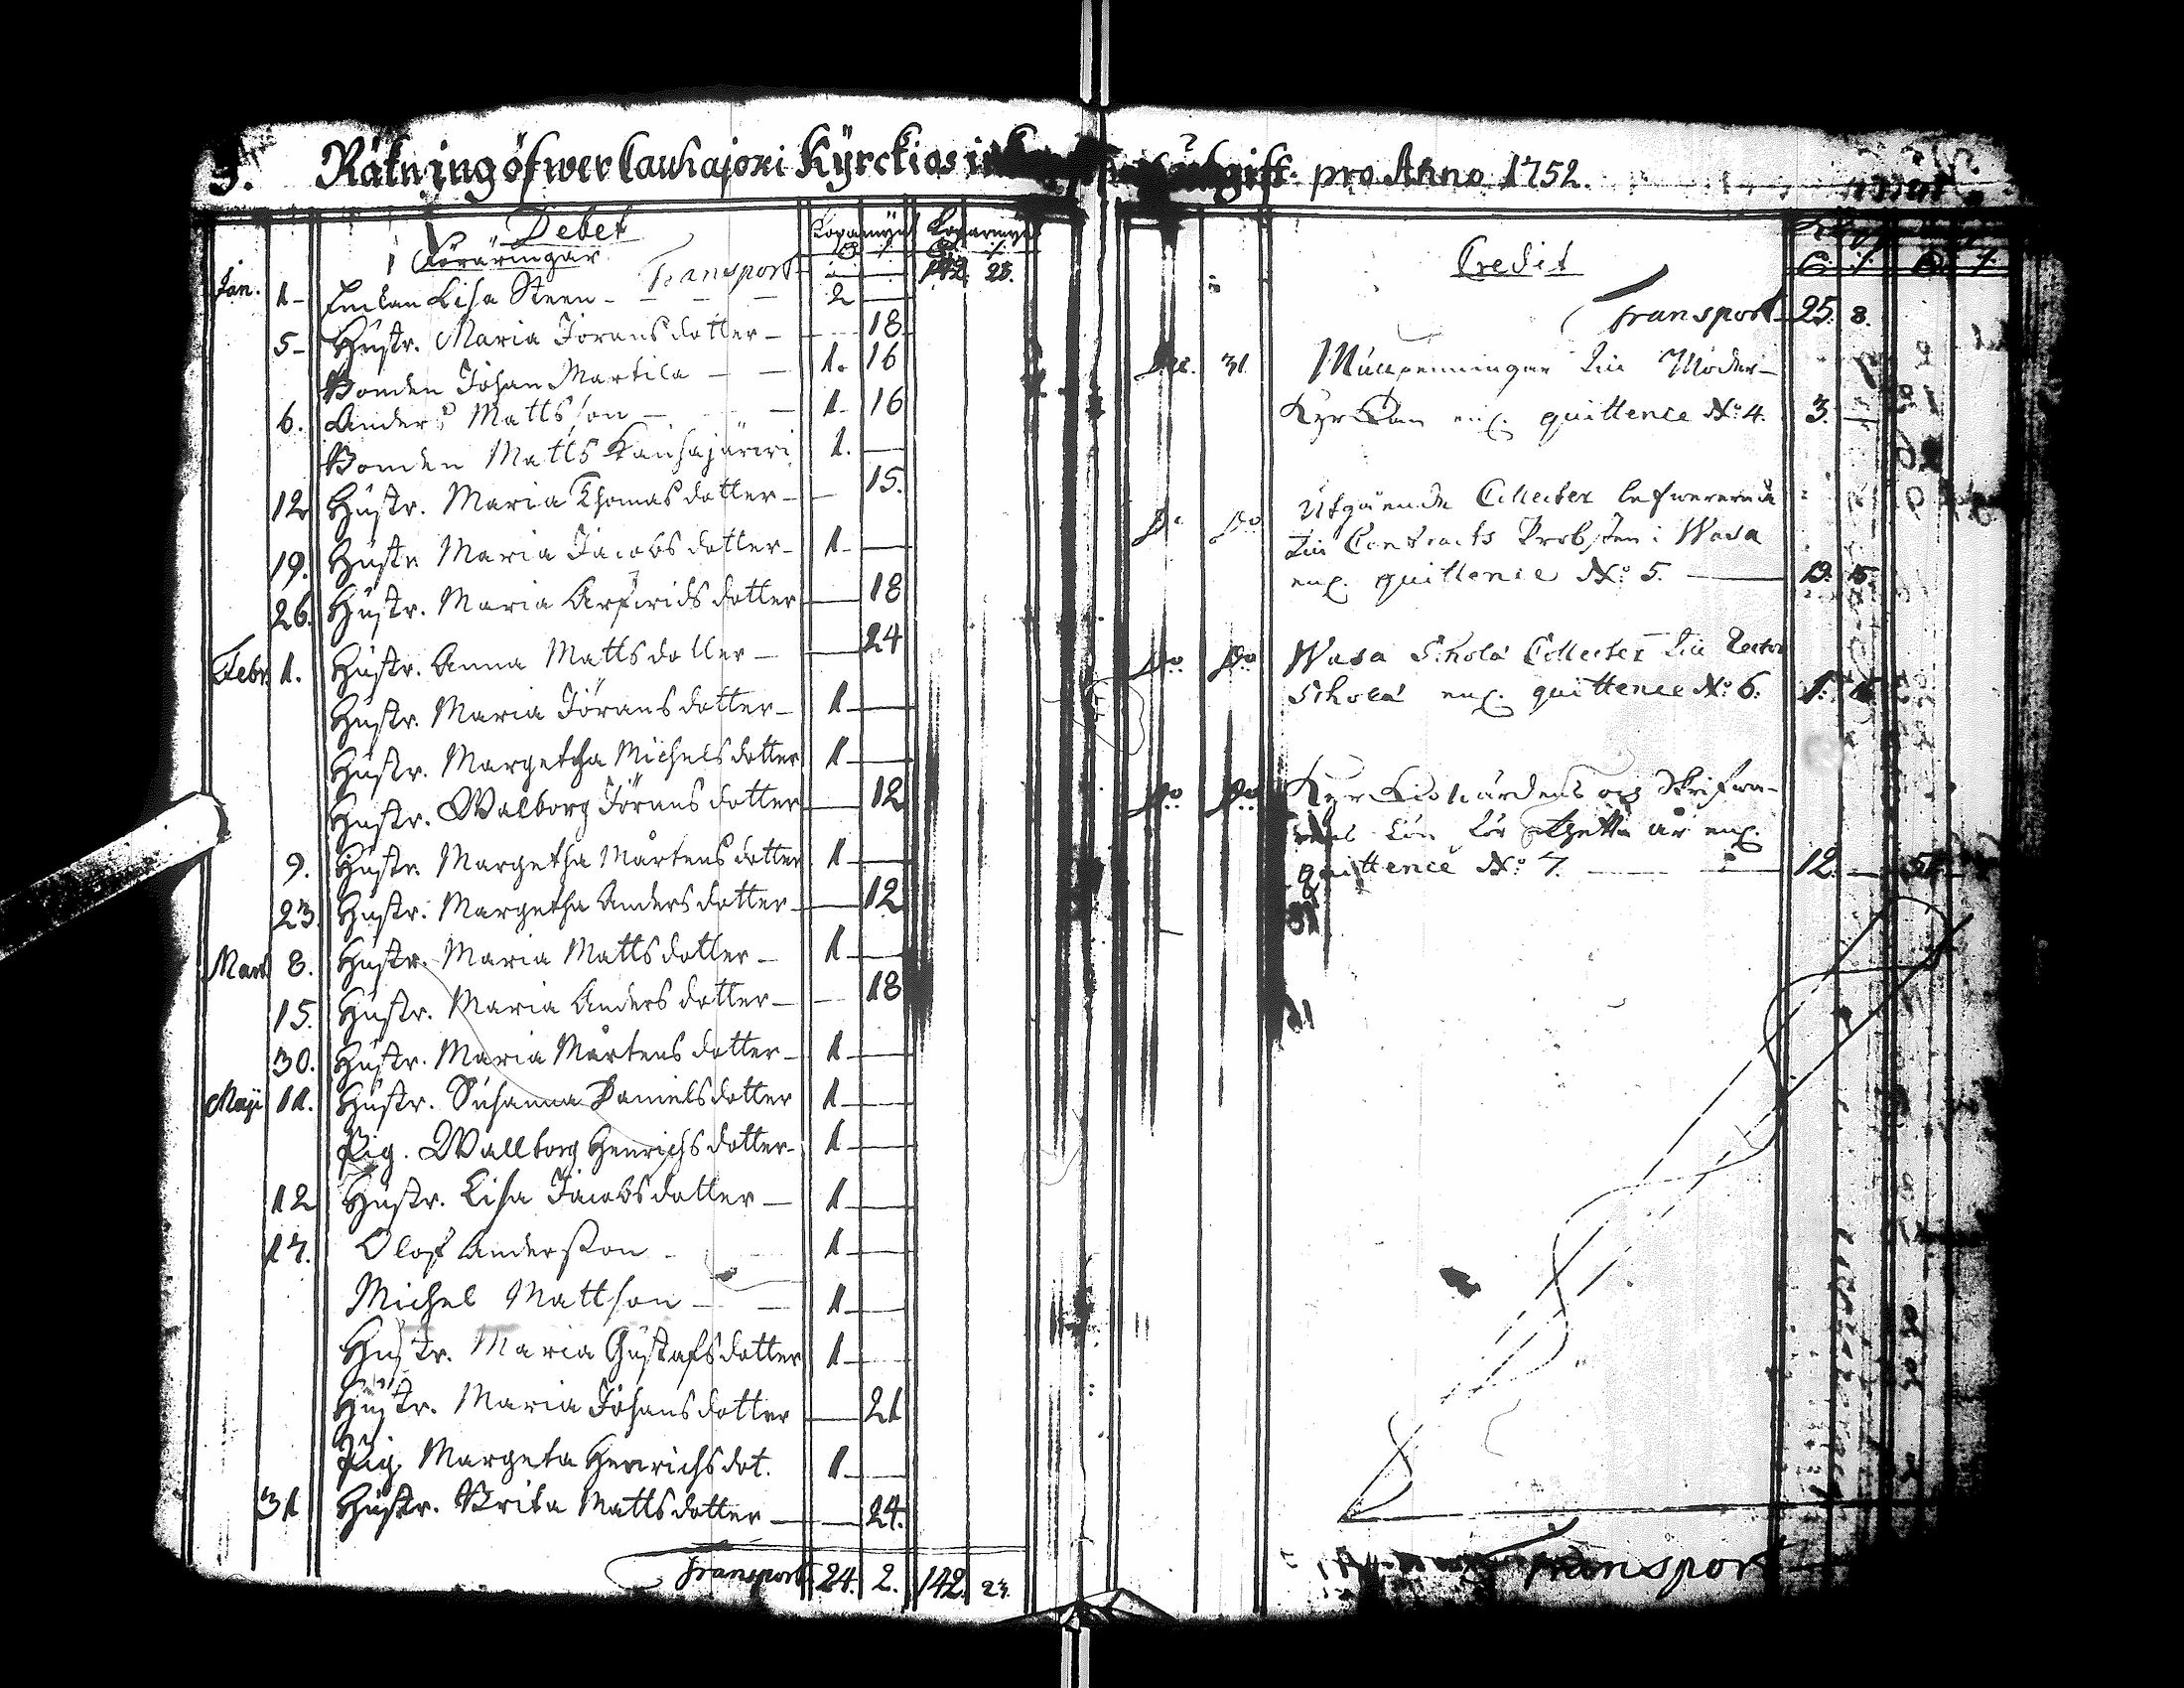 3. Räkning öfwer Lauhajoki Kÿrckios utgift pro Anno 1752.
Debet
Föräringar
Kopamÿnt Koparmÿnt
Transport 142. 23.
Jan. 1 Lisa Steen 2
5 Hustr. Maria Jöransdotter 18
Bonden Johan Martila 1. 16
6. Anders Mattsson 1 16
Bonden Matts Kauhajärwi 1.
12 Hustr. Maria Thomasdotter 15.
19. Hustr Maria Jacobsdotter 1
26. Hustr. Maria Arfwidsdotter 18
Febr. 1. Hustr. Anna Mattsdotter 24
Hustr. Maria Jöransdotter 1
Hustr. Margetha Michelsdotter 1
Hustr. Walborg Jöransdotter 12
9. Hustr. Margetha Mårtensdotter 1
23 Hustr. Margetha Andersdotter 12
Mart 8. Hustr. Maria Mattsdotter 1
15. Hustr. Maria Andersdotter 18
30. Hustr. Maria Mårtensdotter 1
Maji 11. Hustr. Susanna Danielsdotter 1
Pig. Wallborg Henrichsdotter 1
12 Hustr. Lisa Jacobsdotter 1
17. Olof Andersson 1
Michel Mattson 1
Hustr. Maria Gustafsdotter 1
Hustr. Maria Johansdotter 21
Pig. Margeta Henrichsdot. 1
31 Hustr. Brita Mattsdotter 24.
Transport 24. 2. 142. 23.
Credit
Transport 25. 8.
Dec. 31. Mullpenningar till Moder-
Kyrkan enl. quittence No: 4. 3.
Do Do Utgående Collecter lefwererade
till Contracts Probsten i Wasa
enl. quittence No: 5.
Do Do Wasa Schola Collecter till Rector
Schola enl. quittence No: 6. 1.
Do Do Kyrkiowärdens och Skrifwa-
rens Lön för thetta år enl.
quittence No: 7. 12.
Transport